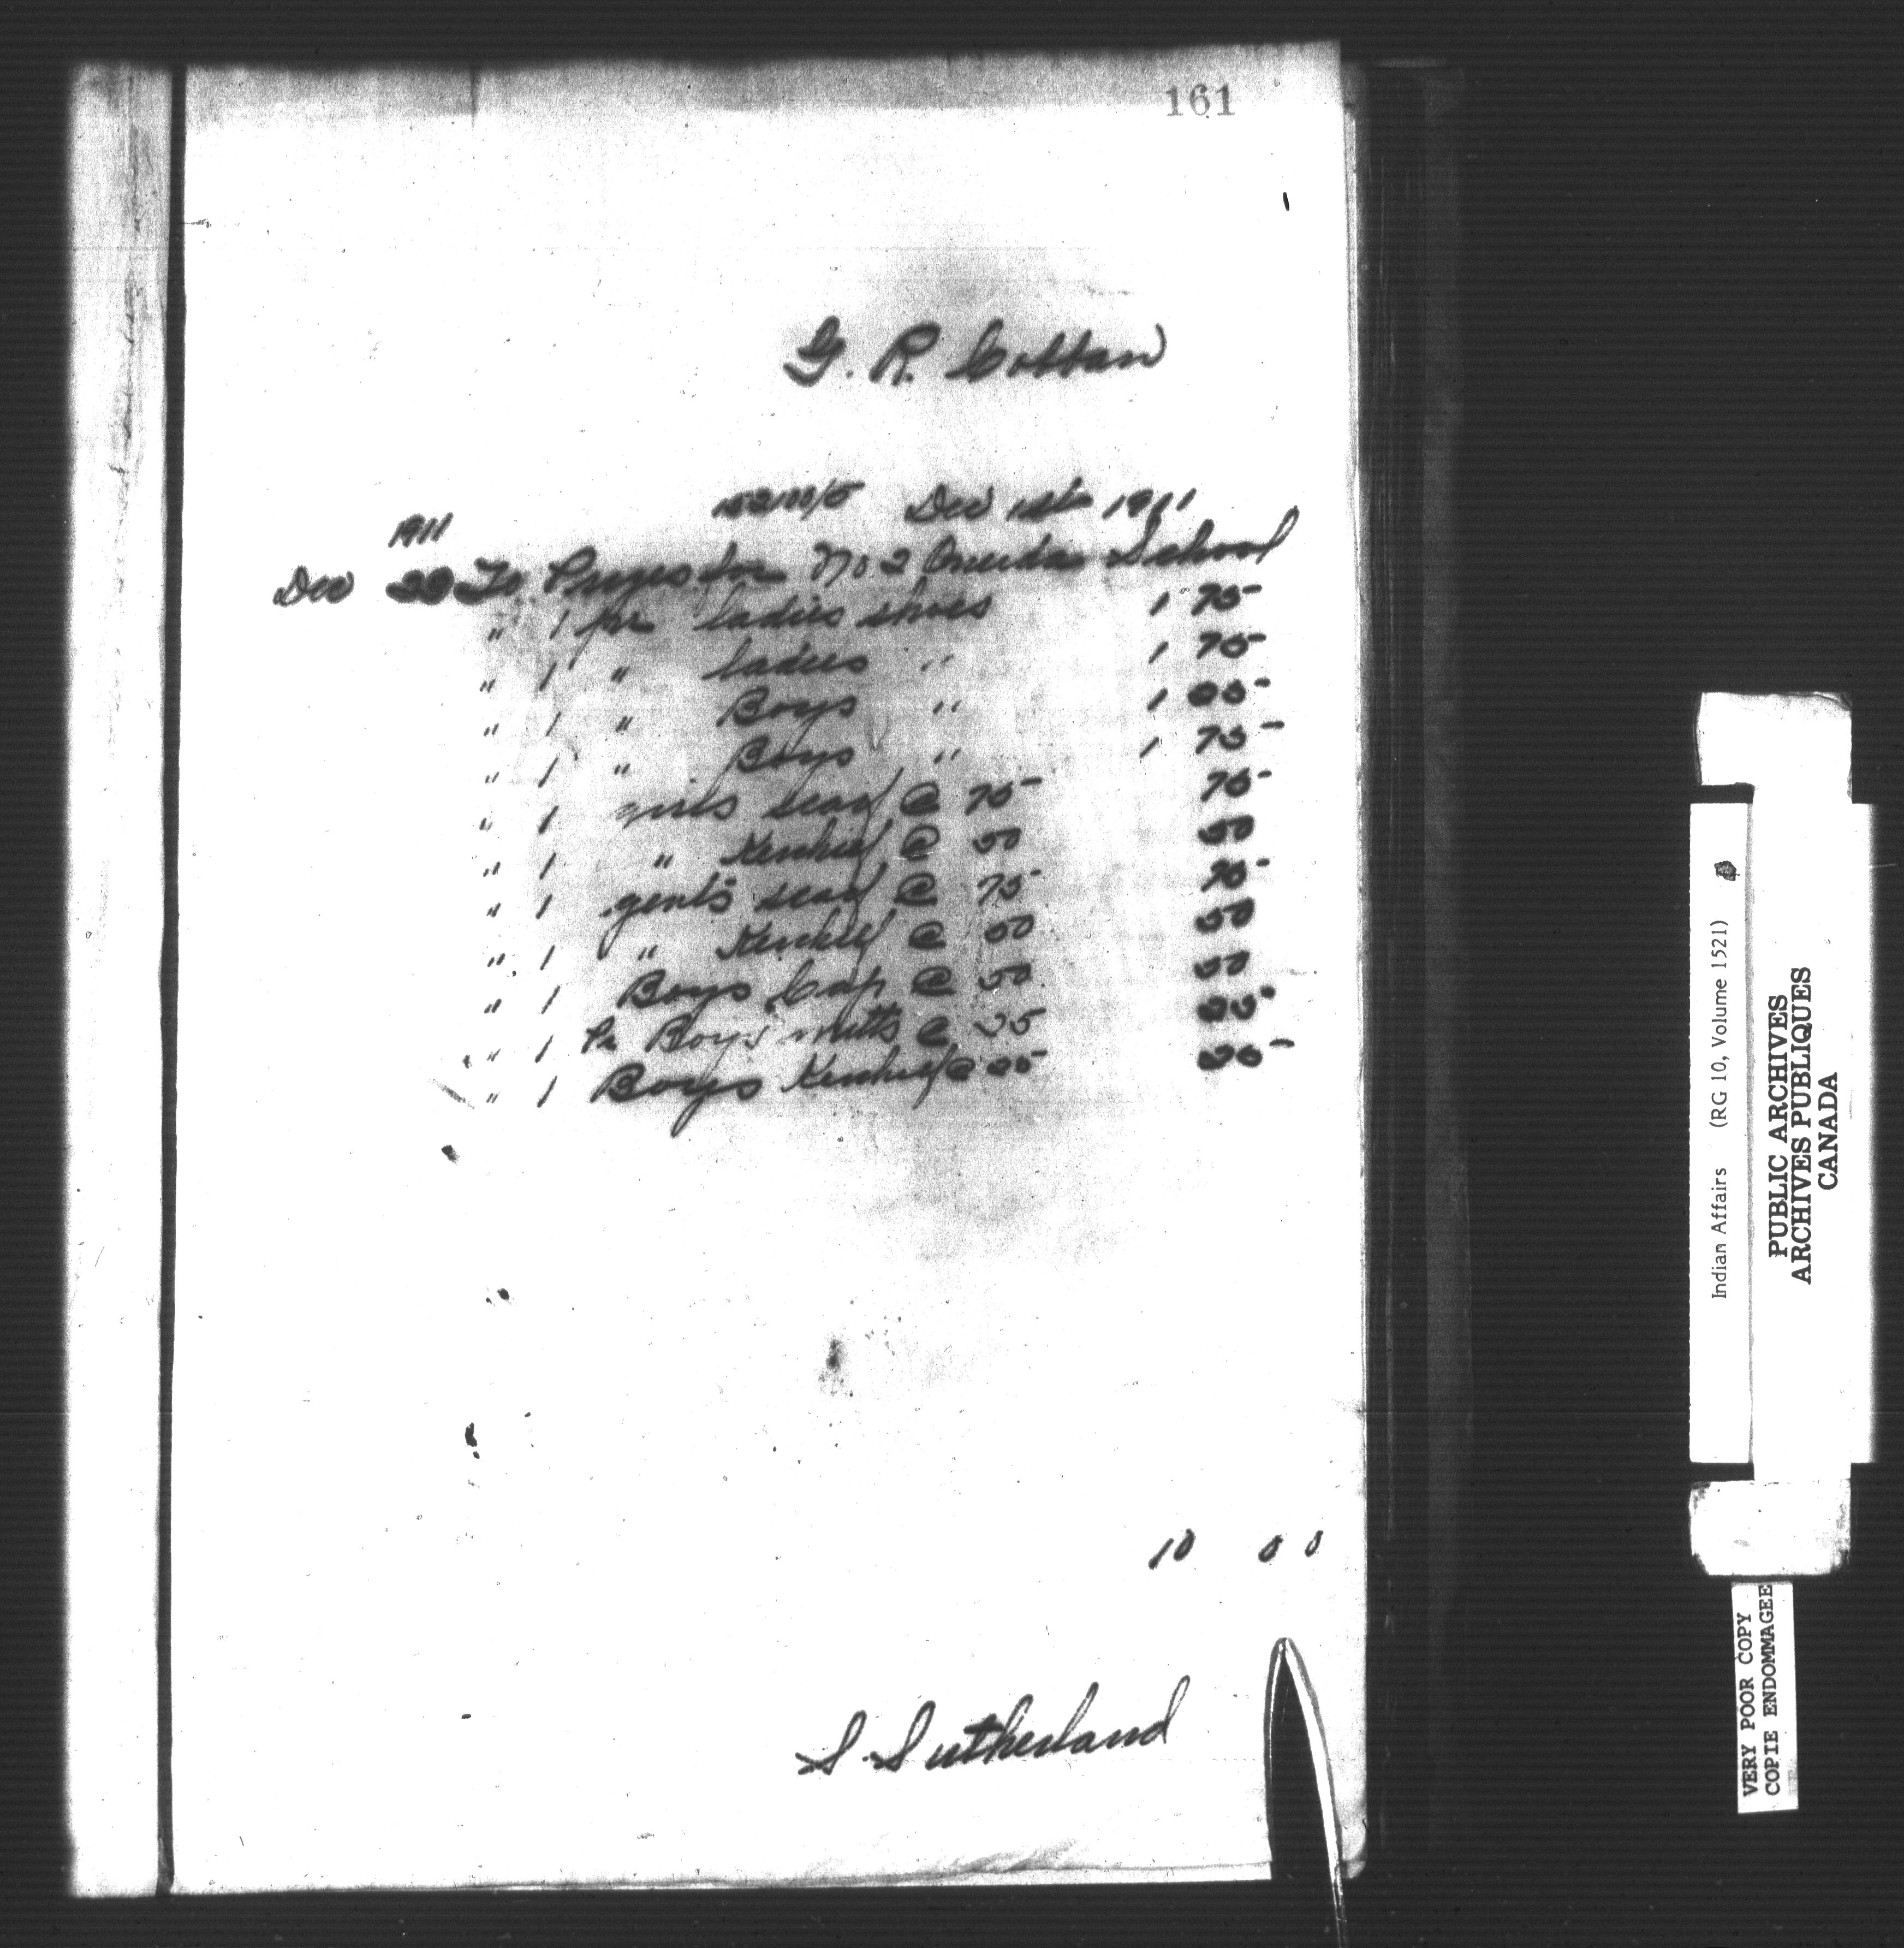 161
G. R. Cottan
152100/5 Dec 1st 1911
1911
Dec 22 To Prizes for No 2 Oneida School
" 1 pr ladies shoes 1 75
" 1 " ladies " 1 75
" 1 " Boys " 1 25
" 1 " Boys " 1 75
" 1 girls scarf @ 75 75
" 1 " Kerchief @ 50 50
" 1 gents scarf @ 75 75
" 1 " Kerchief @ 50 50
" 1 Boys Cap @ 50 50
" 1 Pr Boys mitts @ 25 25
" 1 Boys Kerchief @ 25 25
10 00
S. Sutherland
Indian Affairs (RG 10, Volume 1521)
PUBLIC ARCHIVES
ARCHIVES PUBLIQUES
CANADA
VERY POOR COPY
COPIE ENDOMMAGEE